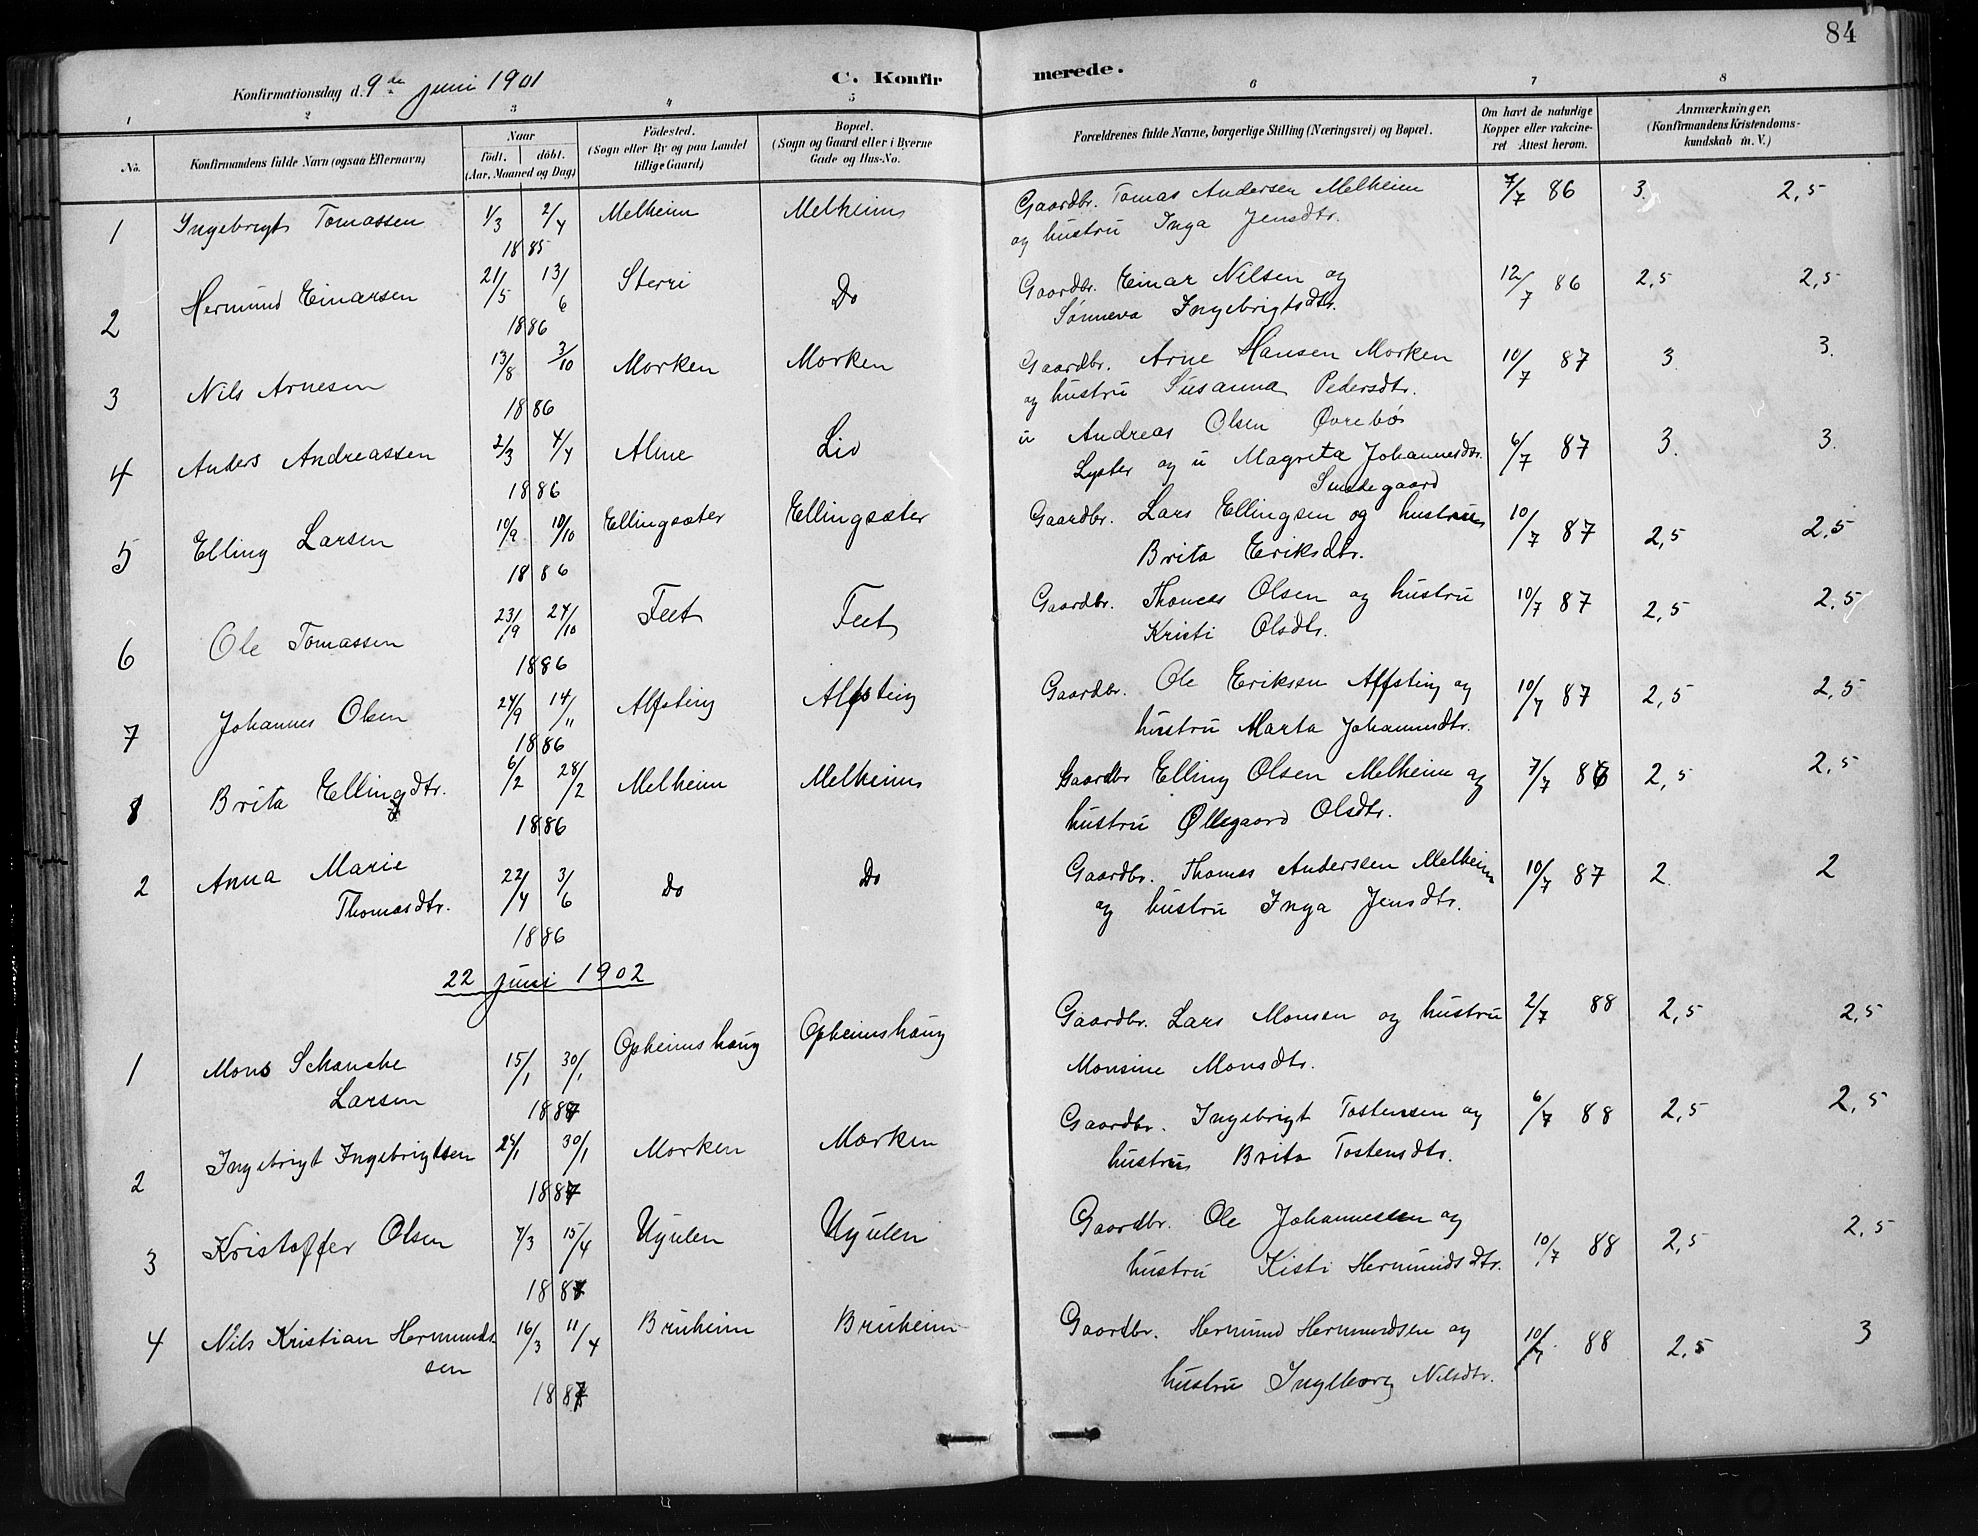 84
Konfirmationsdag d. 9de juni 1901
C. Konfirmerede.
1 2 3 4 5 6 7 8
No.
Konfirmandens fulde Navn (ogsaa Efternavn)
Naar
födt. döbt.
(Aar, Maaned og Dag)
Födested.
(Sogn eller By og paa Landet
tillige Gaard)
Bopæl.
(Sogn og Gaard eller i Byerne
Gade og Hus-No.
Forældrenes fulde Navne, borgerlige Stilling (Næringsvei) og Bopæl.
Om havt de naturlige
Kopper eller vakcine-
ret Attest herom.
Anmærkninger.
(Konfirmandens Kristendoms-
kundskab m. V.)
1 Ingebrigt Tomassen 1/3 2/4 Melheim Melheim Gaardbr. Tomas Andersen Melheim 7/7 86 3. 2,5
1885 og hustru Inga Jensdtr.
2 Hermund Einarsen 21/5 13/6 Sterri Do Gaardbr. Einar Nilsen og 12/7 86 2,5 2,5
1886 Sönneva Ingebrigtsdtr.
3 Nils Arnesen 13/8 3/10 Morken Morken Gaardbr. Arne Hansen Morken 10/7 87 3 3.
1886 og hustru Susanna Pedersdtr.
4 Anders Andreassen 2/3 4/4 Alme Liv u Andreas Olsen Øvrebö 6/7 87 3. 3.
1886 Lyster og u Magreta Johannesdtr.
Smedegaard
5 Elling Larsen 10/9 10/10 Ellingsæter Ellingsæter Gaardbr. Lars Ellingsen og hustru 10/7 87 2,5 2,5
1886 Brita Eriksdtr.
6 Ole Tomassen 23/9 24/10 Feet Feet Gaardbr. Thomas Olsen og hustru 10/7 87 2,5 2,5
1886 Kristi Olsdtr.
7 Johannes Olsen 24/9 14/11 Alfsteig Alfsteig Gaardbr. Ole Eriksen Alfsteig og 10/7 87 2,5 2,5
1886 hustru Marta Johannesdtr.
1 Brita Ellingsdtr. 6/2 28/2 Melheim Melheim Gaardbr Elling Olsen Melheim og 7/7 86 2,5 2,5
1886 hustru Øllegaard Olsdtr.
2 Anna Marie 22/4 3/6 Do Do Gaardbr. Thomas Anderssen Melheim 10/7 87 2. 2
Thomasdtr. og hustru Inga Jensdtr.
1886
22 juni 1902
1 Mons Schanche 15/1 30/1 Opheimshaug Opheimshaug Gaardbr. Lars Monsen og hustru 2/7 88 2,5 2,5
Larsen 1887 Monsine Monsdtr.
2 Ingebrigt Ingebrigtsen 25/1 30/1 Morken Morken Gaardbr. Ingebrigt Tostensen og 6/7 88 2,5 2,5
1887 hustru Brita Tostensdtr.
3 Kristoffer Olsen 7/3 15/4 Uglulen Uglulen Gaardbr. Ole Johannessen og 10/7 88 2,5 2,5
1887 hustru Kisti Hermundsdtr.
4 Nils Kristian Hermunds- 16/3 11/4 Bruheim Bruheim Gaardbr. Hermund Hermundsen og 10/7 88 2,5 3
sen 1887 hustru Ingeborg Nilsdtr.